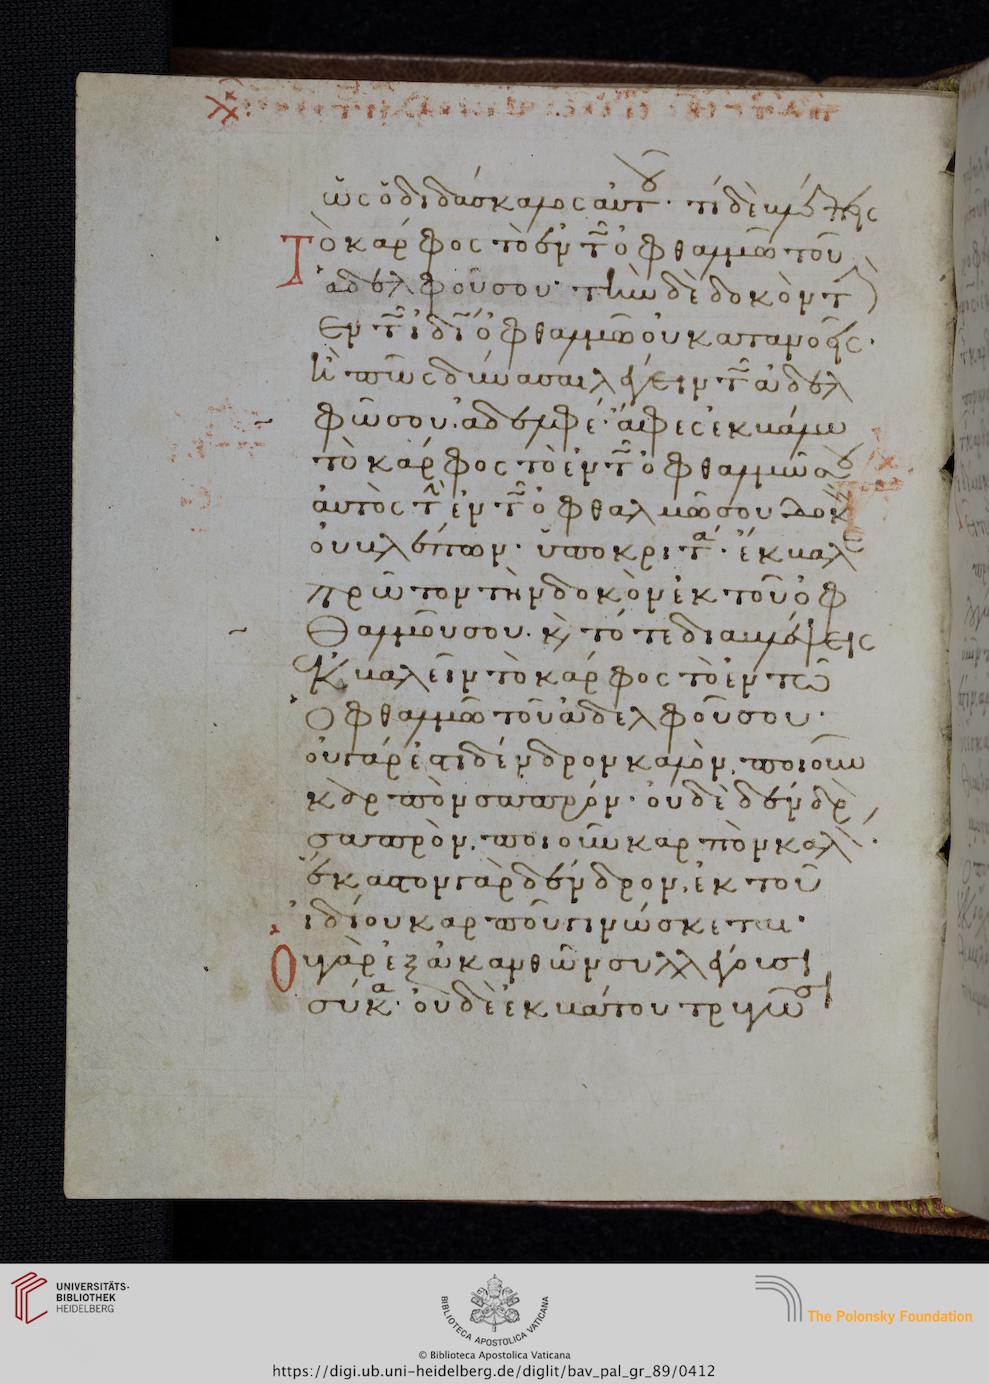 ὡς ὁ διδάσκαλος αὐτου· τί δὲ βλέπεις
Τὸ κάρφος τὸ ἐν τῶ ὀφθαλμῶ τοῦ
ἀδελφοῦ σου· τὴν δὲ δοκὸν τ
ἐν τῶ ἰδίω ὀφθαλμῶ οὐ κατανοεῖς·
ἢ πῶς δύνασαι λέγειν τῶ ἀδελ
φῶ σου· ἀδελφέ· ἄφες ἐκβάλω
τὸ κάρφος τὸ ἐν τῶ ὀφθαλμῶ σου
αὐτὸς τὴν ἐν τῶ ὀφθαλμῶ σου δοκ
οὐ βλέπων· ὑποκριτά· ἔκβαλε
πρῶτον τὴν δοκὸν ἐκ τοῦ ὀφ
θαλμοῦ σου· κ τότε διαβλέψεις
ἐκβαλεῖν τὸ κάρφος τὸ ἐν τῶ
ὀφθαλμῶ τοῦ ἀδελφοῦ σου·
οὐ γάρ ἐστι δένδρον καλὸν, ποιοῦν
καρπὸν σαπρόν· οὐδὲ δένδρ
σαπρὸν, ποιοῦν καρπὸν καλὸν·
ἕκαστον γὰρ δένδρον, ἐκ τοῦ
ἰδίου καρποῦ γινώσκεται·
Οὐ γὰρ ἐξ ἀκανθῶν συλλέγουσι
σύκα· οὐδὲ ἐκ βάτου τρυγῶσι
UNIVERSITÄTS-
BIBLIOTHEK
HEIDELBERG
BIBLIOTECA APOSTOLICA VATICANA
The Polonsky Foundation
© Biblioteca Apostolica Vaticana
https://digi.ub.uni-heidelberg.de/diglit/bav_pal_gr_89/0412